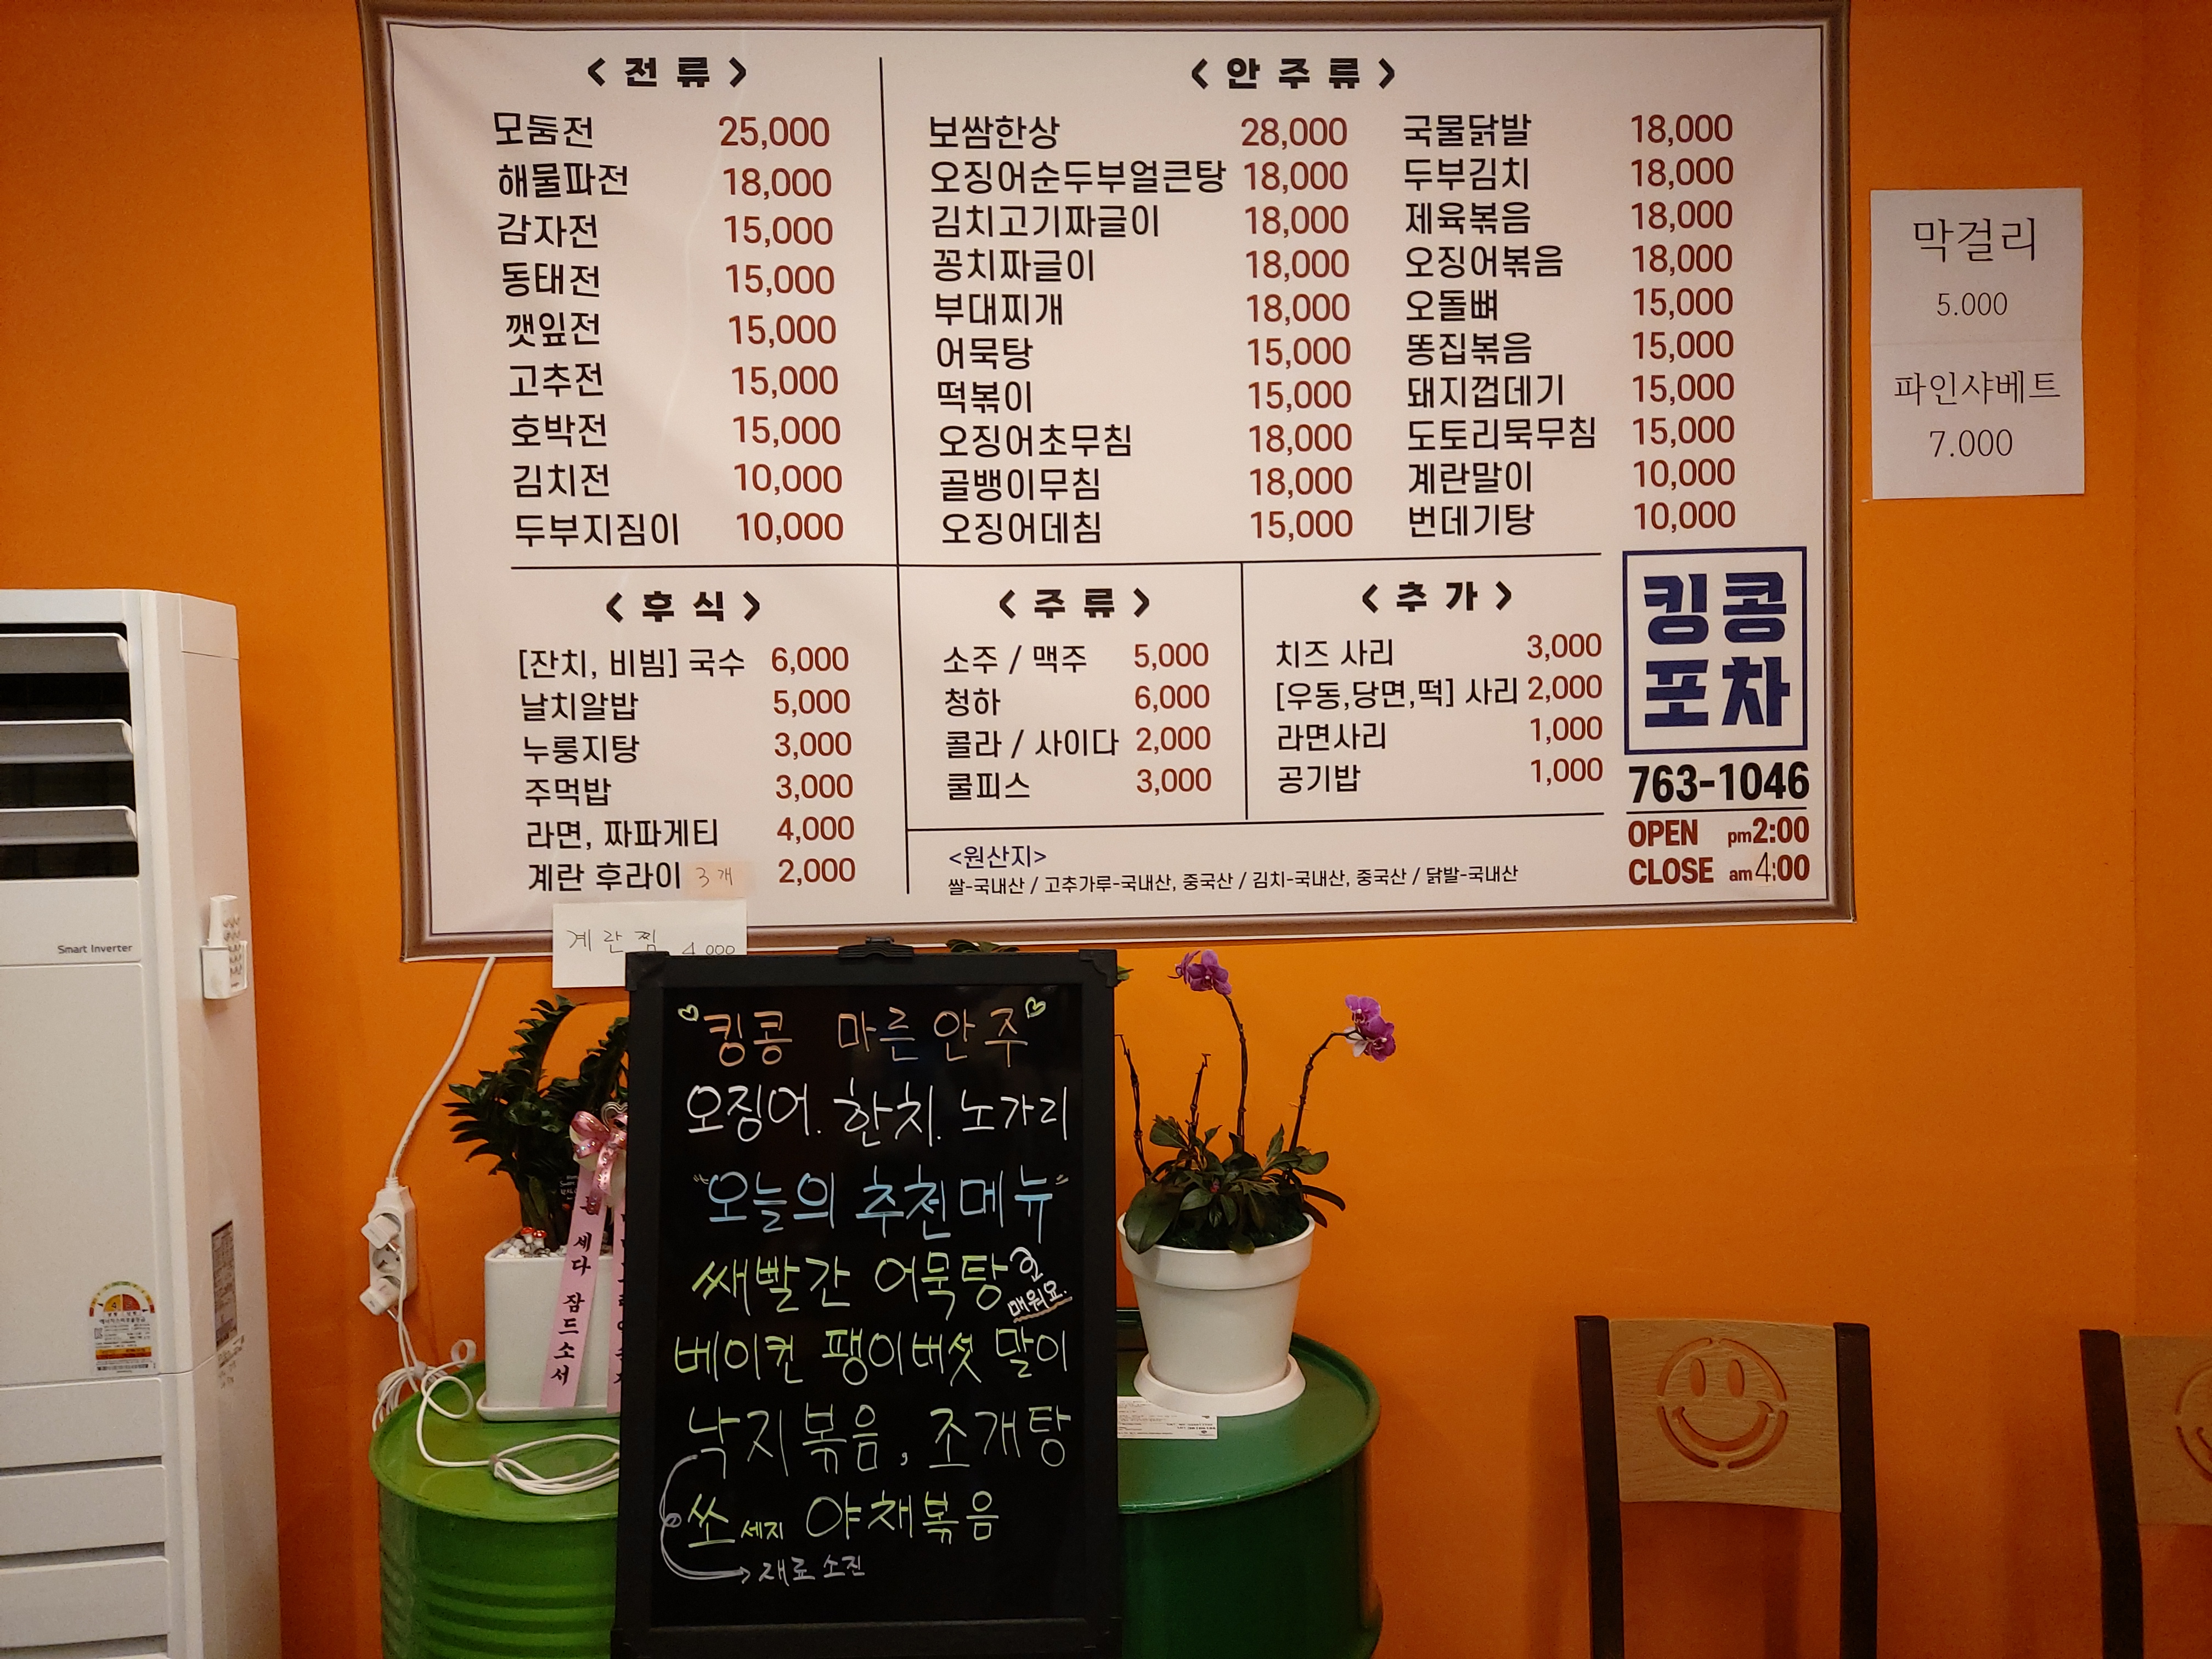 < 전 류 >
모둠전 25,000
해물파전 18,000
감자전 15,000
동태전 15,000
깻잎전 15,000
고추전 15,000
호박전 15,000
김치전 10,000
두부지짐이 10,000
< 안 주 류 >
보쌈한상 28,000
오징어순두부얼큰탕 18,000
김치고기짜글이 18,000
꽁치짜글이 18,000
부대찌개 18,000
어묵탕 15,000
떡볶이 15,000
오징어초무침 18,000
골뱅이무침 18,000
오징어데침 15,000
국물닭발 18,000
두부김치 18,000
제육볶음 18,000
오징어볶음 18,000
오돌뼈 15,000
똥집볶음 15,000
돼지껍데기 15,000
도토리묵무침 15,000
계란말이 10,000
번데기탕 10,000
< 후 식 >
[잔치, 비빔] 국수 6,000
날치알밥 5,000
누룽지탕 3,000
주먹밥 3,000
라면, 짜파게티 4,000
계란 후라이 3개 2,000
계란찜 4,000
< 주 류 >
소주 / 맥주 5,000
청하 6,000
콜라 / 사이다 2,000
쿨피스 3,000
< 추 가 >
치즈 사리 3,000
[우동,당면,떡] 사리 2,000
라면사리 1,000
공기밥 1,000
<원산지>
쌀-국내산 / 고추가루-국내산, 중국산 / 김치-국내산, 중국산 / 닭발-국내산
킹콩
포차
763-1046
OPEN pm2:00
CLOSE am4:00
막걸리
5.000
파인샤베트
7.000
Smart Inverter
킹콩 마른안주
오징어. 한치. 노가리
"오늘의 추천메뉴"
쌔빨간 어묵탕
매워요.
베이컨 팽이버섯 말이
낙지볶음, 조개탕
쏘세지 야채볶음
재료 소진
세다 잠드소서